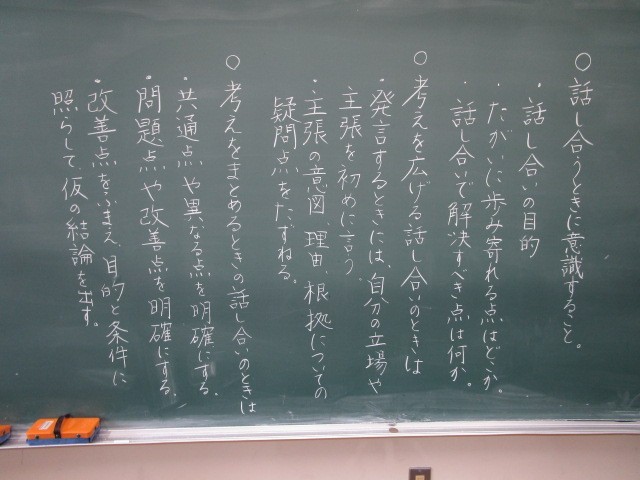 ○話し合うときに意識すること。
・話し合いの目的
・たがいに歩み寄れる点はどこか。
・話し合いで解決すべき点は何か。
○考えを広げる話し合いのときは
・発言するときには、自分の立場や
主張を初めに言う
・主張の意図、理由、根拠についての
疑問点をたずねる。
○考えをまとめるときの話し合いのときは
・共通点や異なる点を明確にする、
・問題点や改善点を明確にする、
・改善点をふまえ、目的と条件に
照らして、仮の結論を出す。